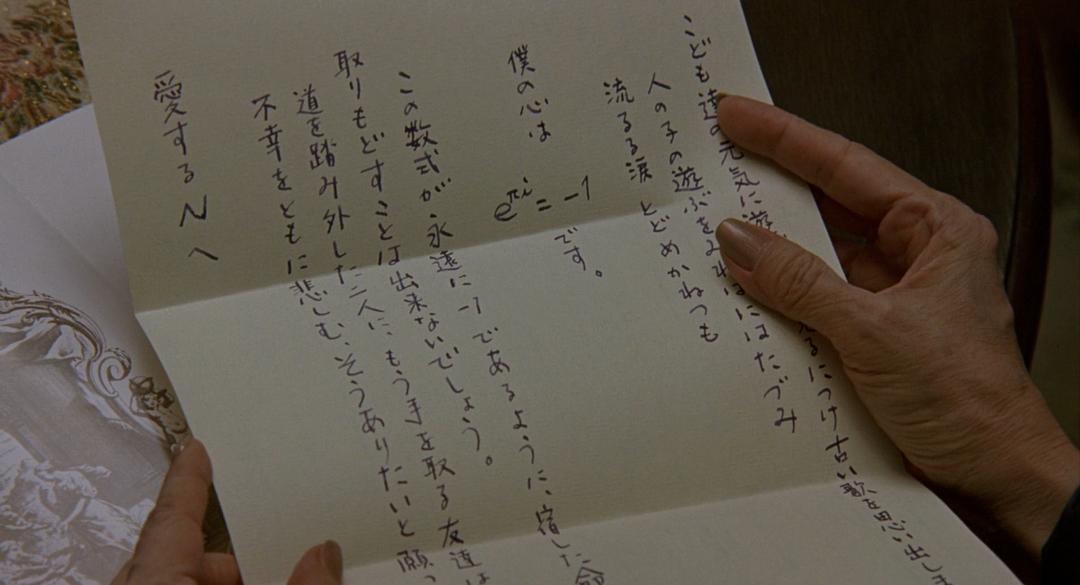 こども達の元気に遊 るにつけ古い歌を思い出しま
人の子の遊ぶをみればにはたづみ
流るる涙とどめかねつも
僕の心は e^πi = -1 です。
この数式が、永遠に-1であるように、宿した命
取りもどすことは出来ないでしょう。
道を踏み外した二人に、もう手を取る友達は
不幸をともに悲しむ、そうありたいと願っ
愛するNへ